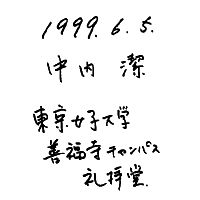 1999. 6. 5.
中内 潔
東京女子大学
善福寺キャンパス
礼拝堂.